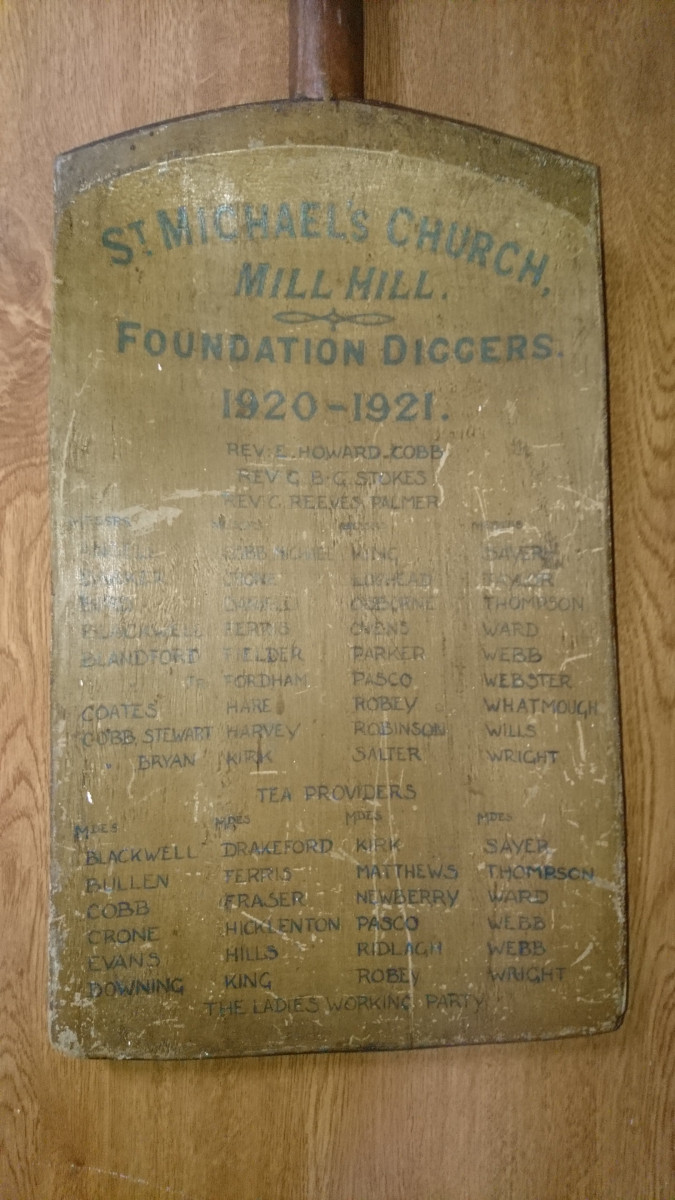 ST MICHAEL'S CHURCH,
MILL HILL.
FOUNDATION DIGGERS.
1920-1921.
REV. E. HOWARD-COBB
REV. G. B-G. STOKES
REV. G. REEVES PALMER
MESSRS MESSRS
COBB, MICHAEL KING SAVER
CRONE TAYLOR
OSBORNE THOMPSON
BLACKWELL FERRIS OVENS WARD
BLANDFORD FIELDER PARKER WEBB
FORDHAM PASCO WEBSTER
COATES HARE ROBEY WHATMOUGH
COBB, STEWART HARVEY ROBINSON WILLS
" BRYAN KIRK SALTER WRIGHT
TEA PROVIDERS
MDES MDES MDES MDES
BLACKWELL DRAKEFORD KIRK SAYER
BULLEN FERRIS MATTHEWS THOMPSON
COBB FRASER NEWBERRY WARD
CRONE HICKLENTON PASCO WEBB
EVANS HILLS RIDLAGH WEBB
DOWNING KING ROBEY WRIGHT
THE LADIES WORKING PARTY